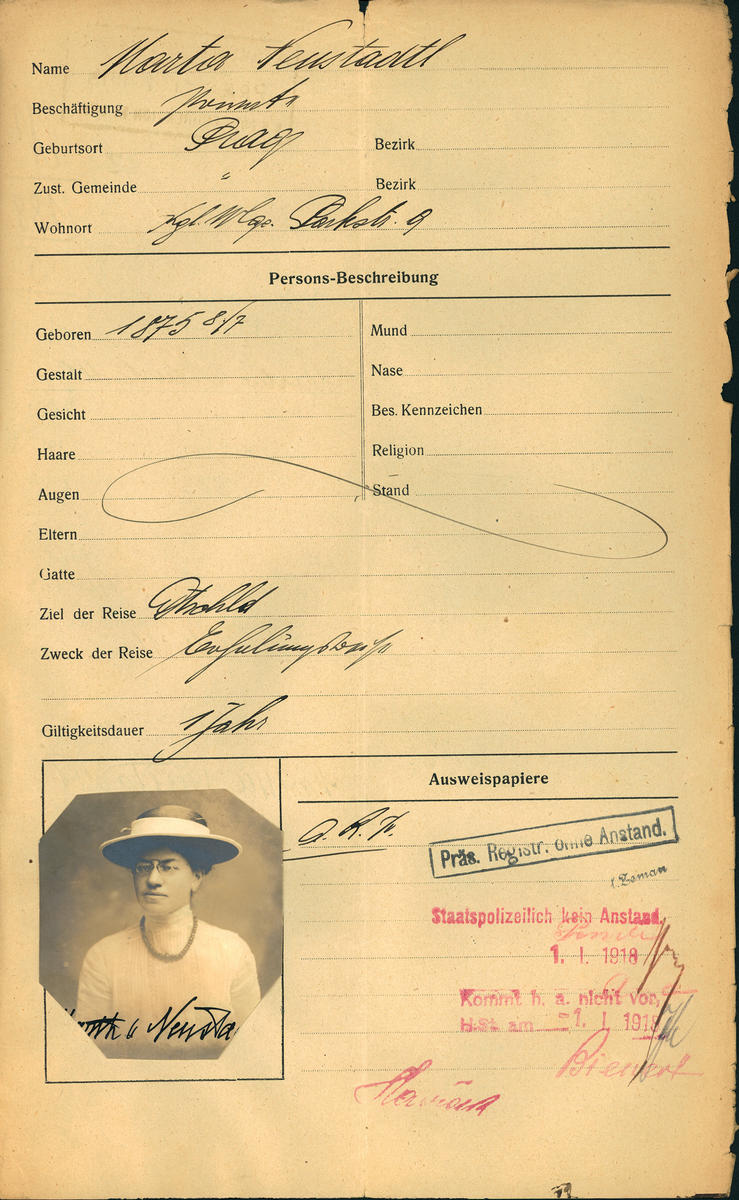 Name Marta Neustadtl
Beschäftigung private
Geburtsort Prag Bezirk
Zust. Gemeinde " Bezirk
Wohnort Kgl. Wbge. Parkstr. 9
Persons-Beschreibung
Geboren 1875 8/7
Mund
Gestalt
Nase
Gesicht
Bes. Kennzeichen
Haare
Religion
Augen
Stand
Eltern
Gatte
Ziel der Reise Dtschld
Zweck der Reise Erholungsreise
Giltigkeitsdauer 1 Jahr
Ausweispapiere
Präs. Registr. ohne Anstand.
Zeman
Staatspolizeilich kein Anstand.
1. I. 1918
Kommt h. a. nicht vor,
H.St. am -1. I. 1918
Neusta